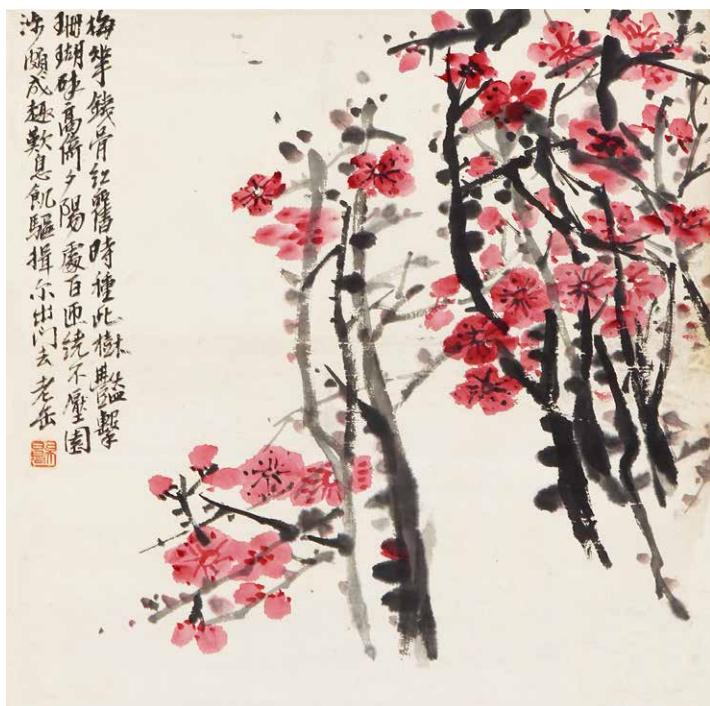 梅華鐵骨紅舊時種此樹豔擊
珊瑚碎高倚夕陽處百匝繞不壓園
涉頗成趣歎息飢驅揖尔出門去 老缶